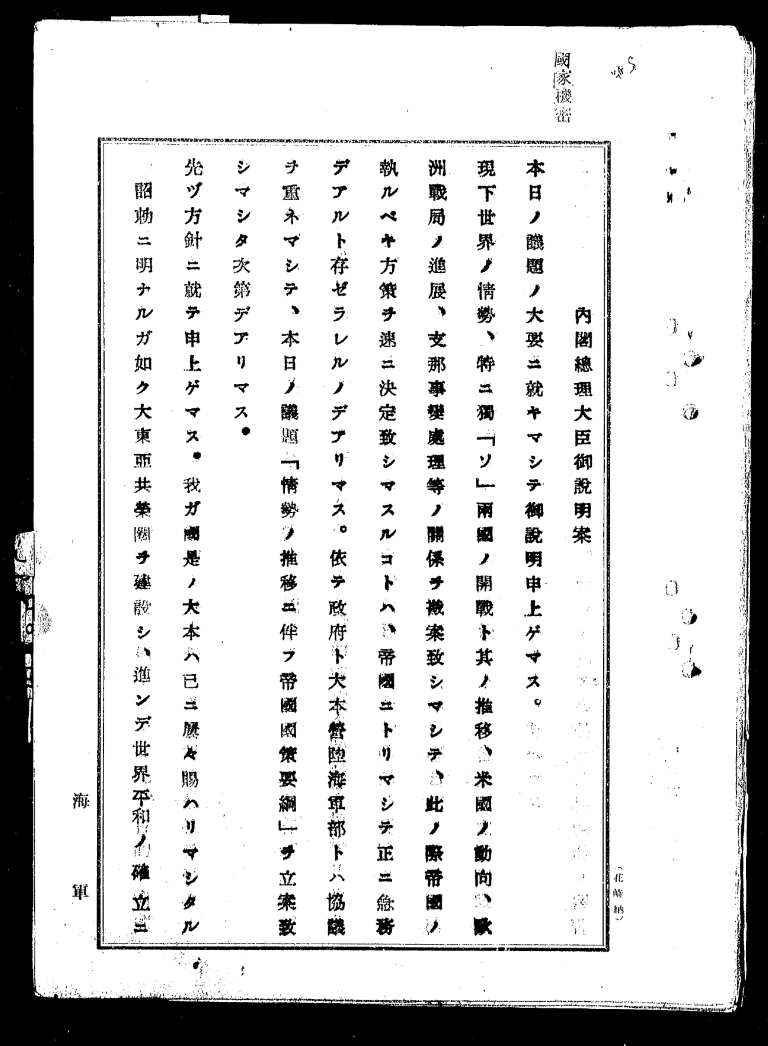 國家機密
内閣總理大臣御說明案
本日ノ議題ノ大要ニ就キマシテ御說明申上ゲマス。
現下世界ノ情勢、特ニ獨「ソ」兩國ノ開戰ト其ノ推移、米國ノ動向、歐
洲戰局ノ進展、支那事變處理等ノ關係ヲ檢案致シマシテ、此ノ際帝國ノ
執ルベキ方策ヲ速ニ決定致シマスルコトハ、帝國ニトリマシテ正ニ急務
デアルト存ゼラレルノデアリマス。依テ政府ト大本營陸海軍部トハ協議
ヲ重ネマシテ、本日ノ議題「情勢ノ推移ニ伴フ帝國國策要綱」ヲ立案致
シマシタ次第デアリマス。
先ヅ方針ニ就テ申上ゲマス。我ガ國是ノ大本ハ已ニ屢々賜ハリマシタル
詔勅ニ明ナルガ如ク大東亞共榮圈ヲ建設シ、進ンデ世界平和ノ確立ニ
海軍